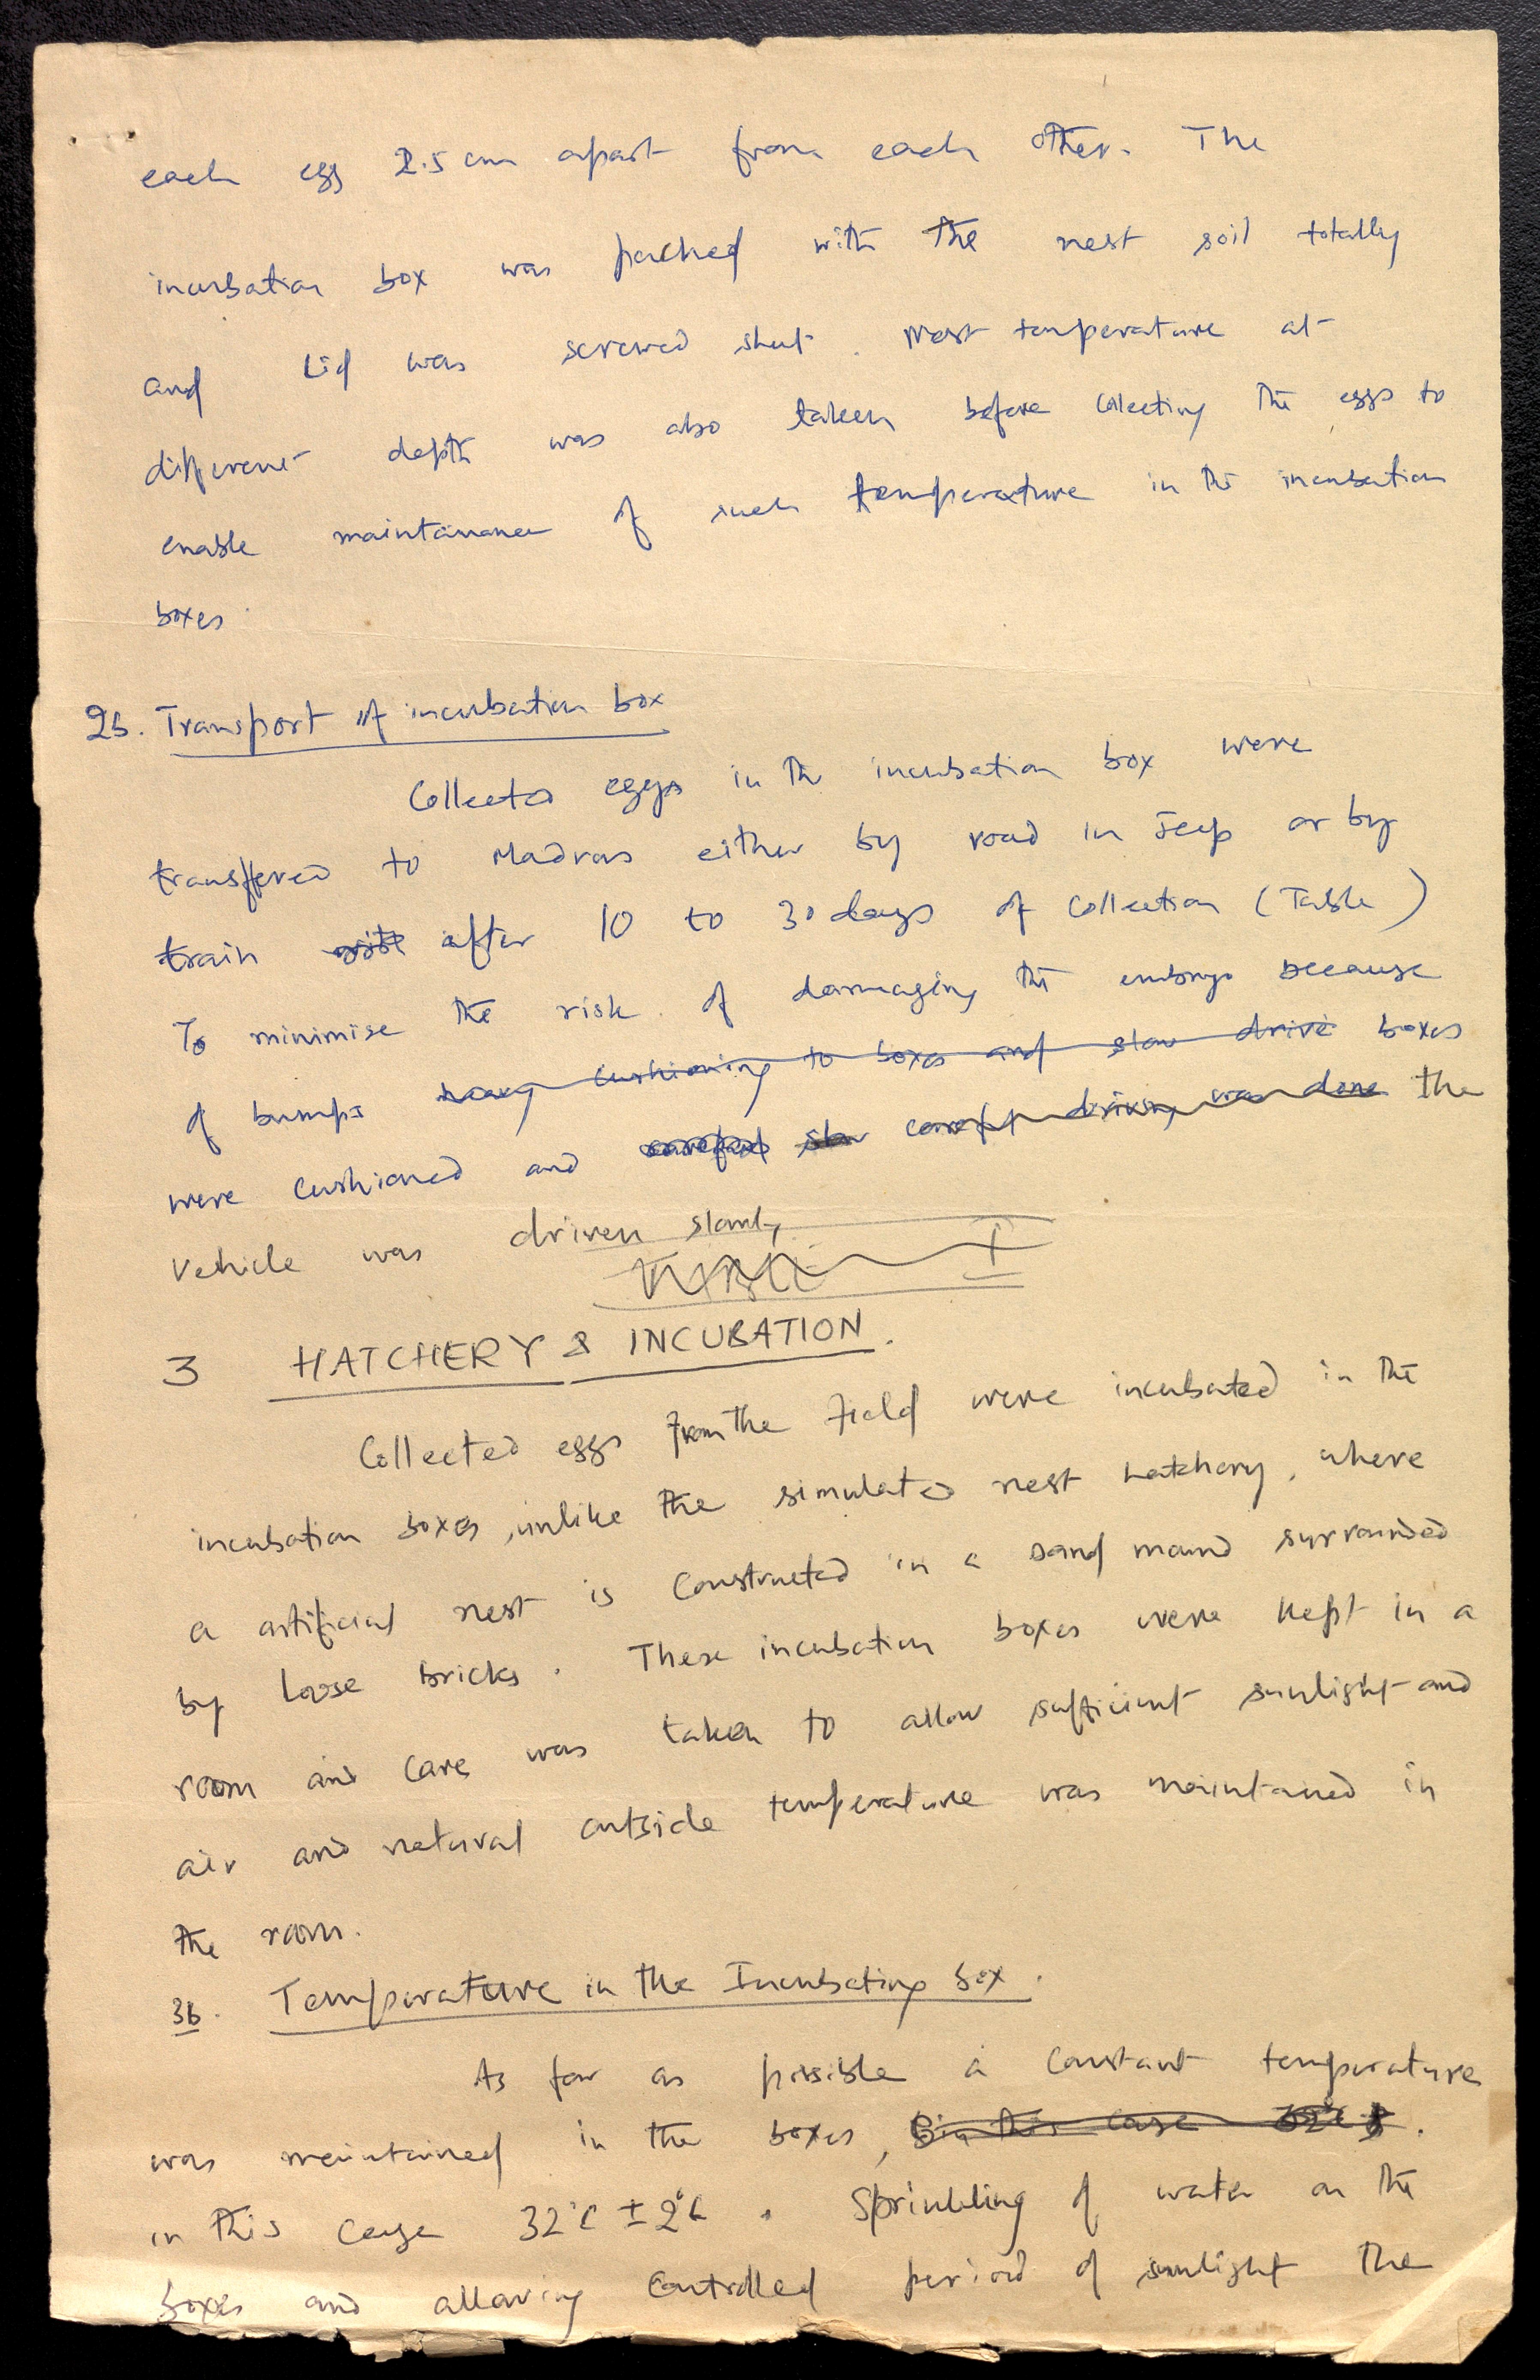 each egg 2.5 cm apart from each other. The
incubation box was packed with the nest soil totally
and Lid was screwed shut. Nest temperature at
different depth was also taken before collecting the eggs to
enable maintainance of such temperature in the incubation
boxes.
2b. Transport of incubation box
Collected eggs in the incubation box were
transffered to Madras either by road in Jeep or by
train with after 10 to 30 days of collection (Table )
To minimise the risk of damaging the embryo because
of bumps heavy cushioning to boxes and slow drive boxes
were cushioned and careful slow careful driving was done the
vehicle was driven slowly
3 HATCHERY & INCUBATION.
Collected eggs from the field were incubated in the
incubation boxes, unlike the simulated nest hatchery, where
a artificial nest is constructed in a sand mound surrounded
by loose bricks. These incubation boxes were kept in a
room and care was taken to allow sufficient sunlight and
air and natural outside temperature was maintained in
the room.
3b. Temperature in the Incubating box.
As far as possible a constant temperature
was maintained in the boxes, in this case 32°C.
in this case 32°C ± 2°C. Sprinkling of water on the
boxes and allowing controlled period of sunlight the